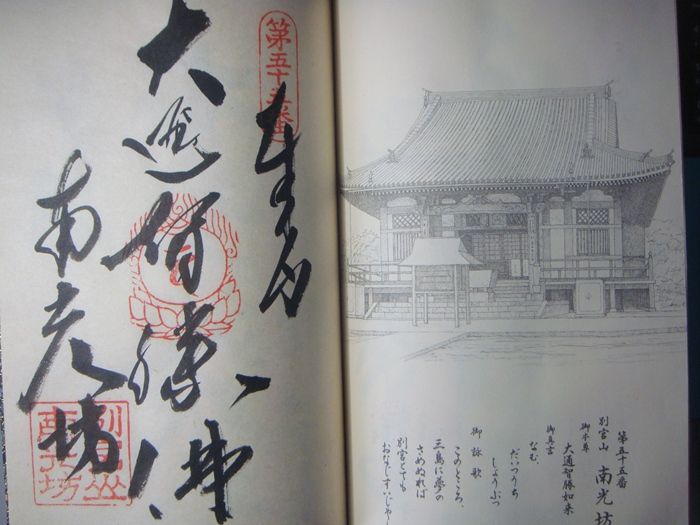 第五十五番
奉納
大通智勝佛
南光坊
別宮山
南光坊
第五十五番
別宮山 南光坊
御本尊
大通智勝如来
御真言
なむ
だいつうち
しょうぶつ
御詠歌
このところ、
三島に夢の
さめぬれば
別宮とても
おなじすいじゃく